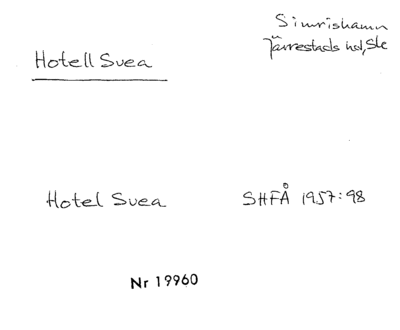 Simrishamn
Järrestads hd, Ske
Hotell Svea
Hotel Svea SHFÅ 1957:98
Nr 19960